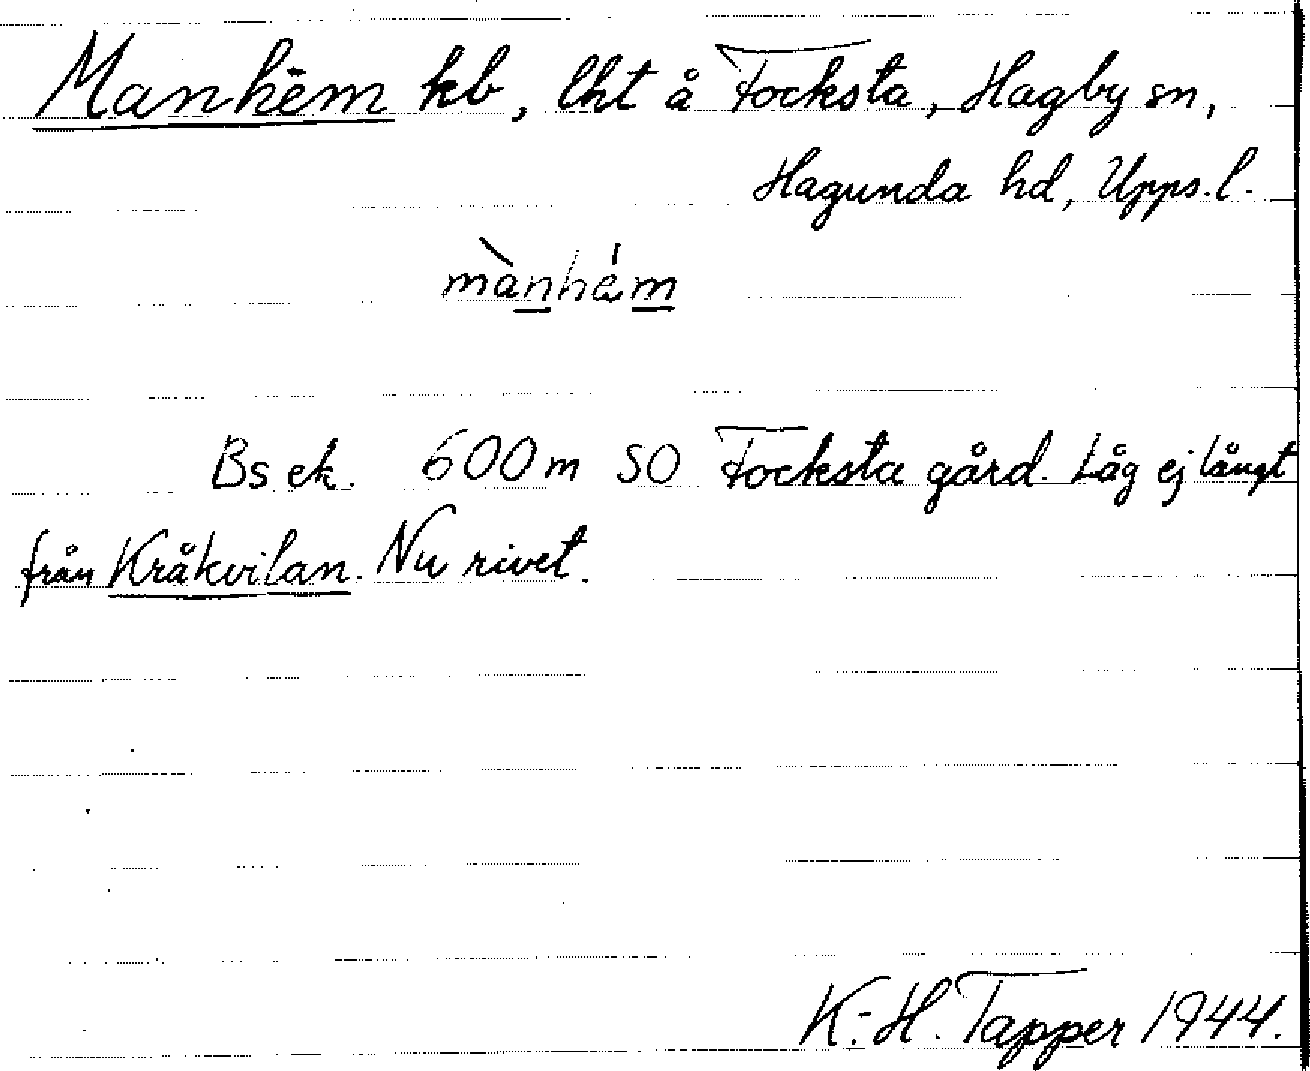 Manhēm kb, lht å Focksta, Hagby sn,
Hagunda hd, Upps. l.
mànhém
Bs ek. 600m SO Focksta gård. Låg ej långt
från Kråkvilan. Nu rivet.
K.-H. Tapper 1944.